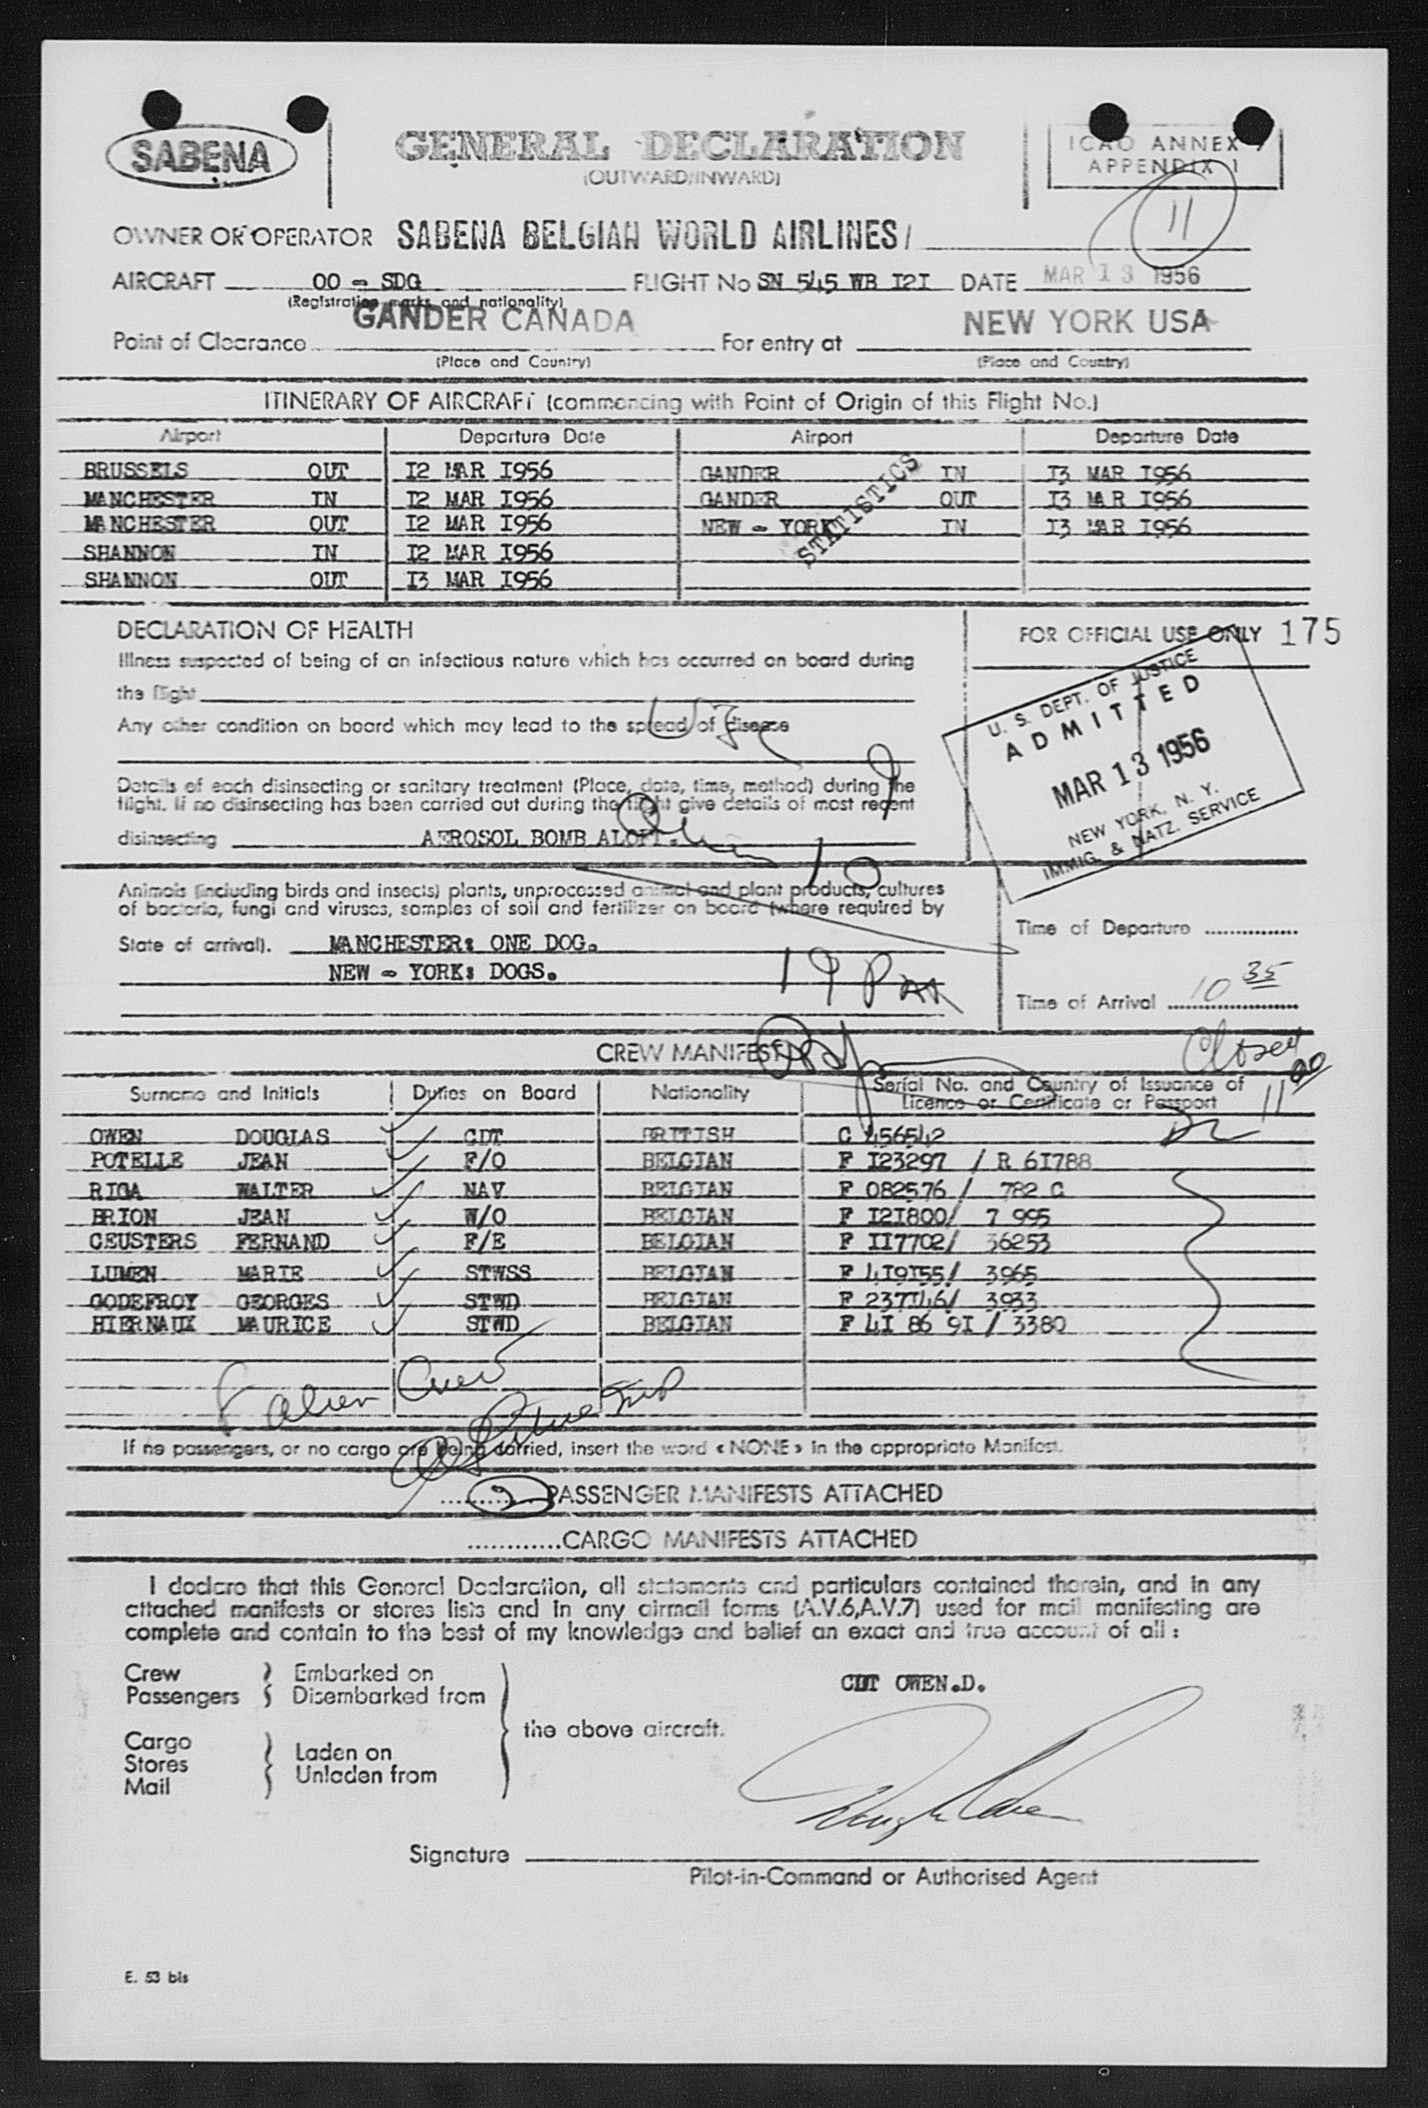 SABENA
GENERAL DECLARATION
(OUTWARD/INWARD)
ICAO ANNEX
APPENDIX 1
11
OWNER OR OPERATOR SABENA BELGIAN WORLD AIRLINES/
AIRCRAFT OO - SDG FLIGHT No SN 545 WB I2I DATE MAR 13 1956
(Registration marks and nationality)
Point of Clearance GANDER CANADA For entry at NEW YORK USA
(Place and Country) (Place and Country)
ITINERARY OF AIRCRAFT (commencing with Point of Origin of this Flight No.)
Airport Departure Date Airport Departure Date
BRUSSELS OUT I2 MAR I956 GANDER IN I3 MAR I956
MANCHESTER IN I2 MAR I956 GANDER OUT I3 MAR I956
MANCHESTER OUT I2 MAR I956 NEW - YORK IN I3 MAR I956
SHANNON IN I2 MAR I956
SHANNON OUT I3 MAR I956
STATISTICS
DECLARATION OF HEALTH
FOR OFFICIAL USE ONLY 175
Illness suspected of being of an infectious nature which has occurred on board during
the flight
Any other condition on board which may lead to the spread of disease
Details of each disinsecting or sanitary treatment (Place, date, time, method) during the
flight. If no disinsecting has been carried out during the flight give details of most recent
disinsecting AEROSOL BOMB ALOFT.
U. S. DEPT. OF JUSTICE
ADMITTED
MAR 13 1956
NEW YORK, N. Y.
IMMIG. & NATZ. SERVICE
Animals (including birds and insects) plants, unprocessed animal and plant products, cultures
of bacteria, fungi and viruses, samples of soil and fertilizer on board (where required by
State of arrival). MANCHESTER: ONE DOG.
NEW - YORK: DOGS.
10
19 Pax
Time of Departure
Time of Arrival 10 35
Closed
11 00
CREW MANIFEST
Surname and Initials Duties on Board Nationality Serial No. and Country of Issuance of
Licence or Certificate or Passport
OWEN DOUGLAS CDT BRITISH C 456542
POTELLE JEAN F/O BELGIAN F I23297 / R 6I788
RIGA WALTER NAV BELGIAN F 082576 / 782 C
BRION JEAN W/O BELGIAN F I2I800/ 7 995
CEUSTERS FERNAND F/E BELGIAN F II7702/ 36253
LUMEN MARIE STWSS BELGIAN F 4I9I55/ 3965
GODEFROY GEORGES STWD BELGIAN F 237I46/ 3933
HIERNAUX MAURICE STWD BELGIAN F 4I 86 9I / 3380
If no passengers, or no cargo are being carried, insert the word « NONE » in the appropriate Manifest.
2 PASSENGER MANIFESTS ATTACHED
CARGO MANIFESTS ATTACHED
I declare that this General Declaration, all statements and particulars contained therein, and in any
attached manifests or stores lists and in any airmail forms (A.V.6,A.V.7) used for mail manifesting are
complete and contain to the best of my knowledge and belief an exact and true account of all :
Crew Embarked on
Passengers Disembarked from
the above aircraft.
Cargo
Stores Laden on
Mail Unladen from
CDT OWEN.D.
Signature
Pilot-in-Command or Authorised Agent
E. 53 bis